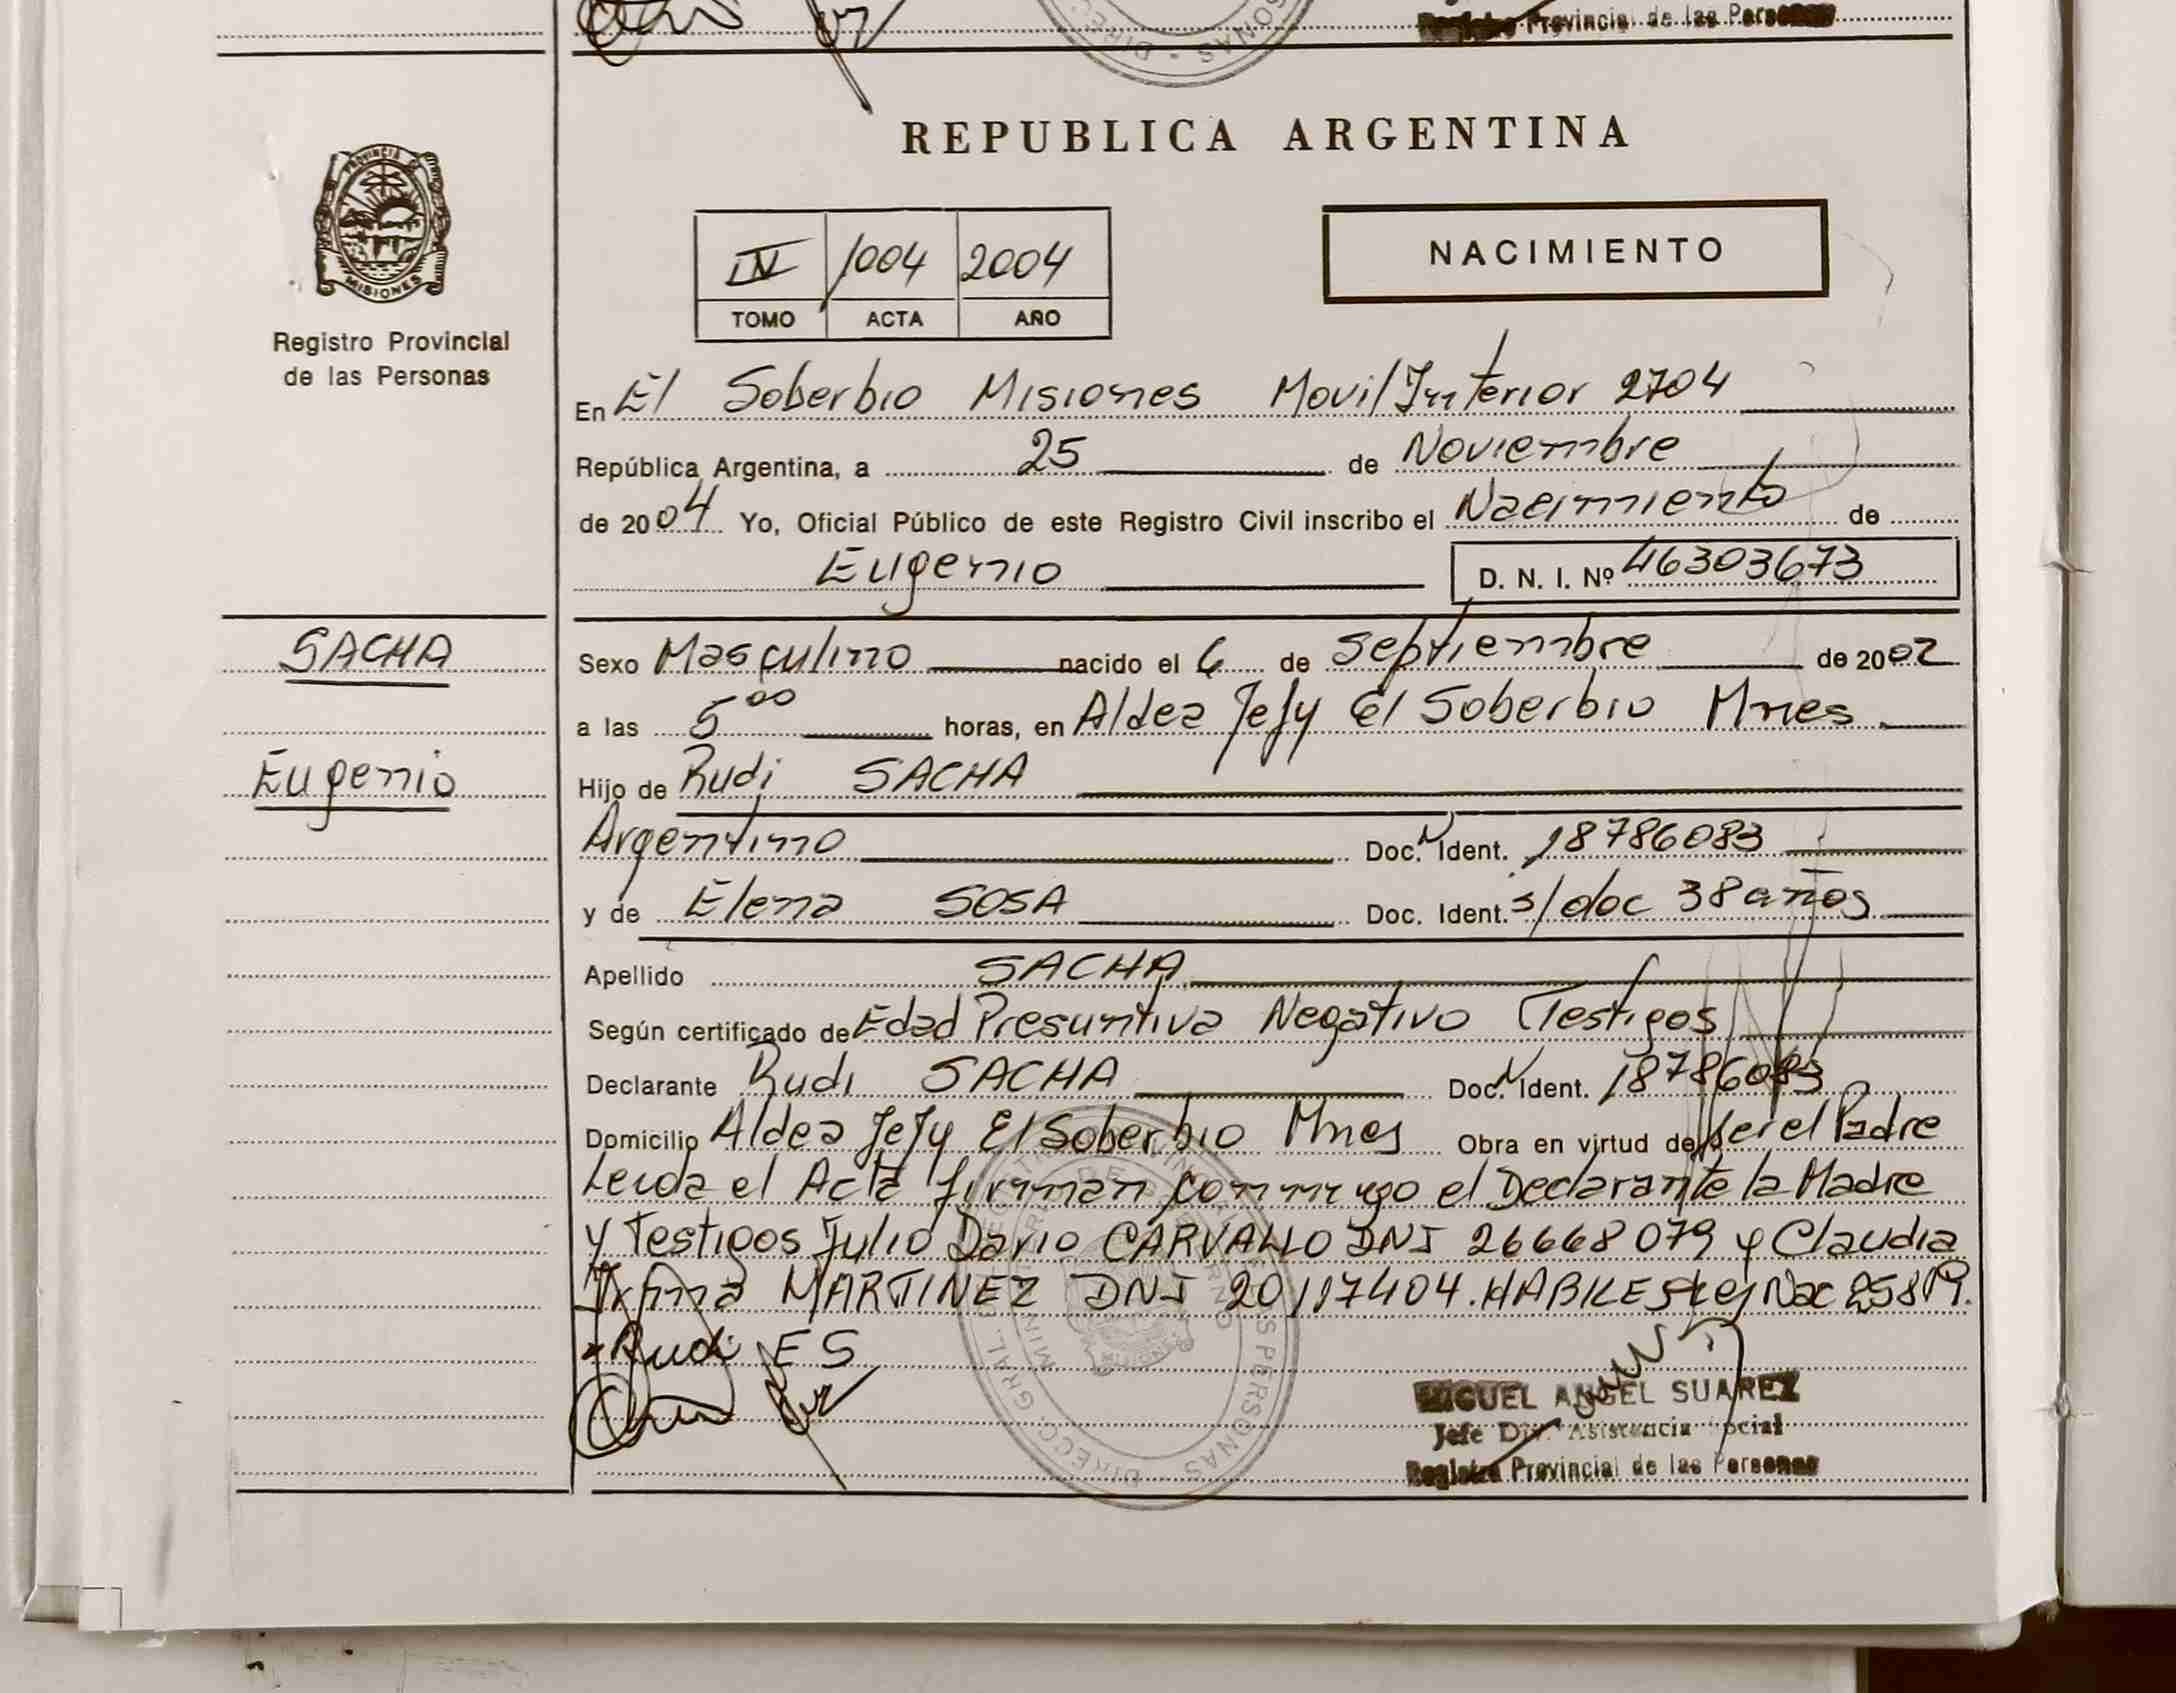 Registro Provincial de las Personas
REPUBLICA ARGENTINA
PROVINCIA DE MISIONES
Registro Provincial
de las Personas
IV 1004 2004
TOMO ACTA AÑO
NACIMIENTO
En El Soberbio Misiones Movil Interior 2704
República Argentina, a 25 de Noviembre
de 2004 Yo, Oficial Público de este Registro Civil inscribo el Nacimiento de
Eugenio D. N. I. Nº 46303673
SACHA
Eugenio
Sexo Masculino nacido el 6 de Septiembre de 2002
a las 5 00 horas, en Aldea Jejy El Soberbio Mnes
Hijo de Rudi SACHA
Argentino Doc. N Ident. 18786083
y de Elena SOSA Doc. Ident. s/doc 38 años
Apellido SACHA
Según certificado de Edad Presuntiva Negativo Testigos
Declarante Rudi SACHA Doc. N Ident. 18786083
Domicilio Aldea Jejy El Soberbio Mnes Obra en virtud de Ser el Padre
Leida el Acta firman conmigo el Declarante la Madre
y Testigos Julio Dario CARVALLO DNI 26668079 y Claudia
Irma MARTINEZ DNI 20117404. Ley Nac
Rudi ES
MIGUEL ANGEL SUAREZ
Jefe Div. Asistencia Social
Registro Provincial de las Personas